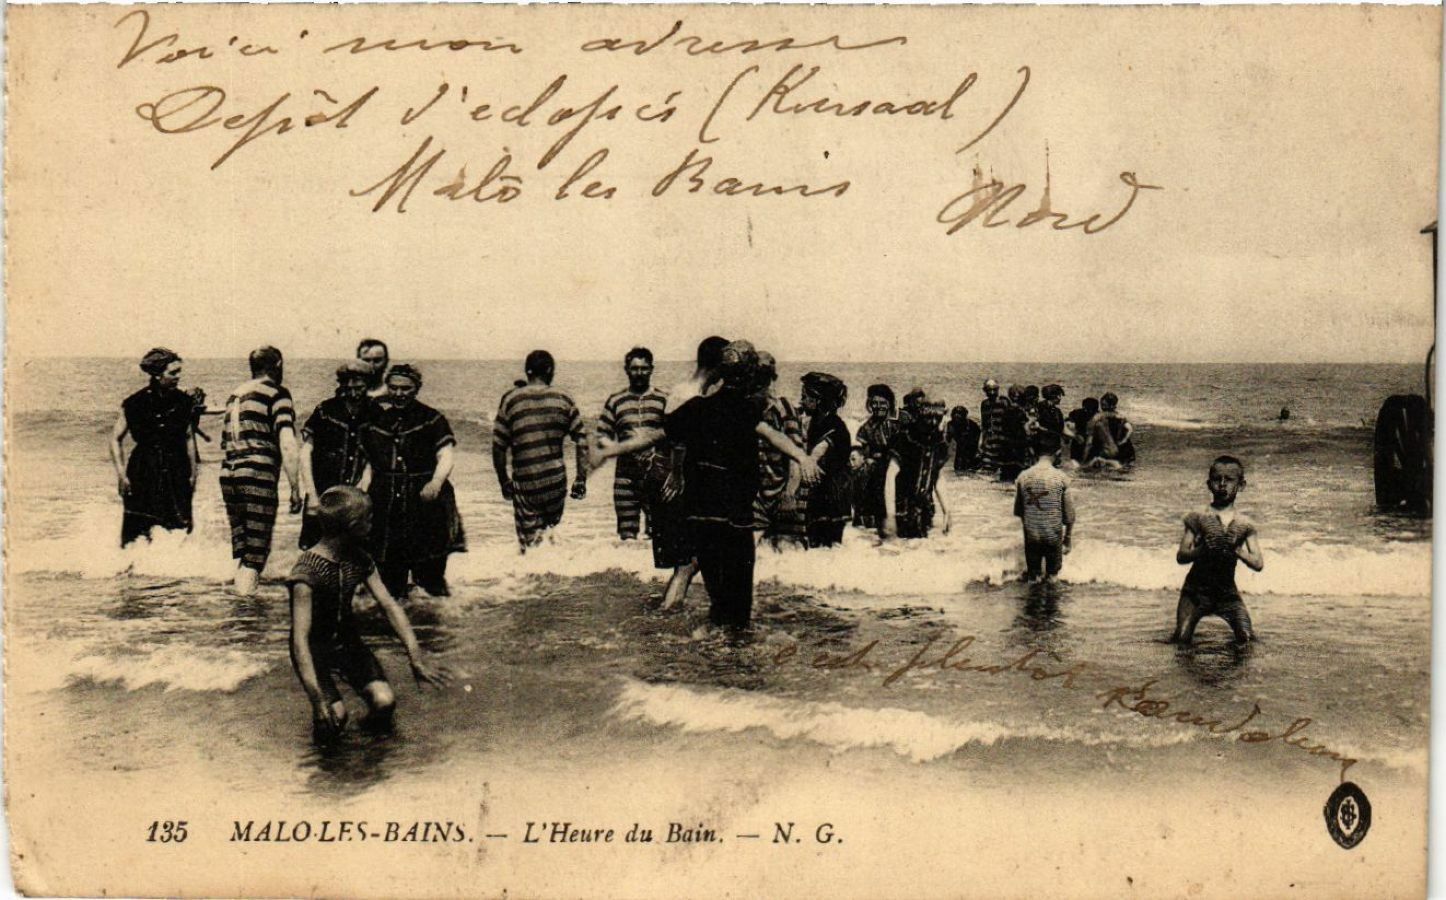 Voici mon adresse
Depôt d'eclopés (Kursaal)
Malo les Bains Nord
c'est plutôt
135 MALO-LES-BAINS. — L'Heure du Bain. — N. G.